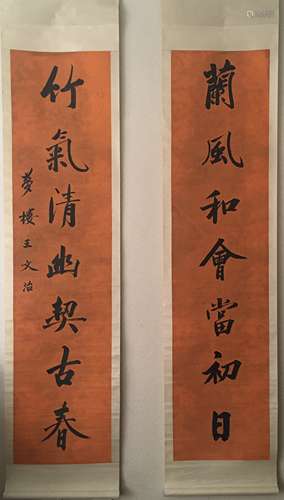 蘭風和會當初日
竹氣清幽契古春
夢樓王文治